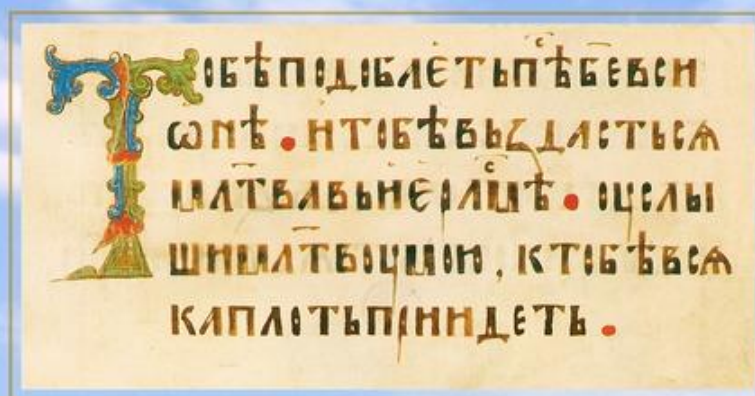 Тобѣподобаѥтьп҇ѣб҃евси
ѡнѣ. итобѣвъздастьсѧ
мл҃твавъиѥрл҇мѣ. оуслы
шимл҃твоумою, ктобѣвсѧ
каплотьпридеть.